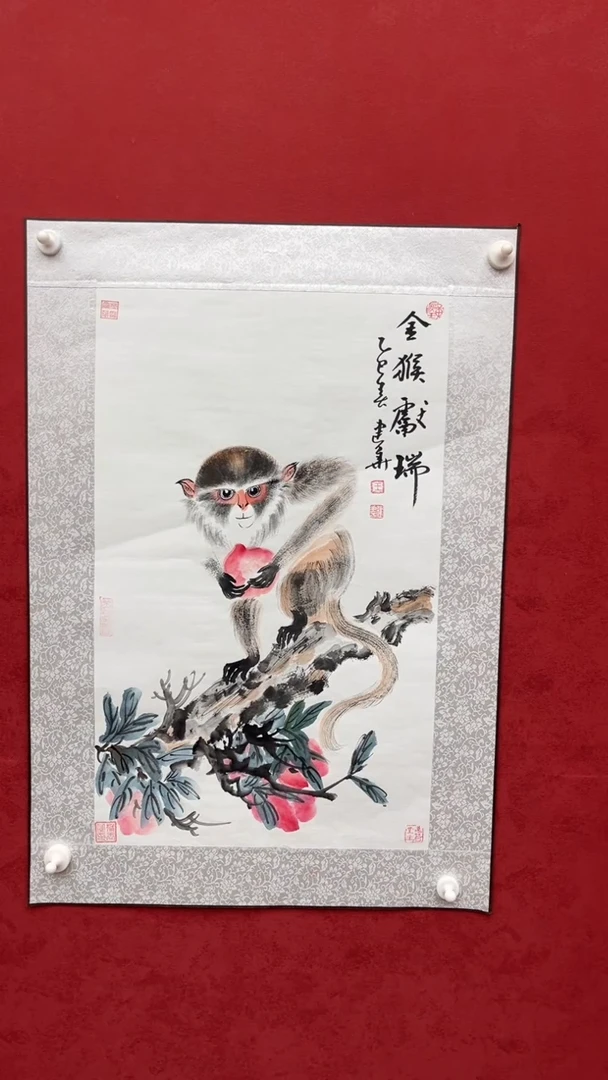 金猴献瑞
乙巳春 建华